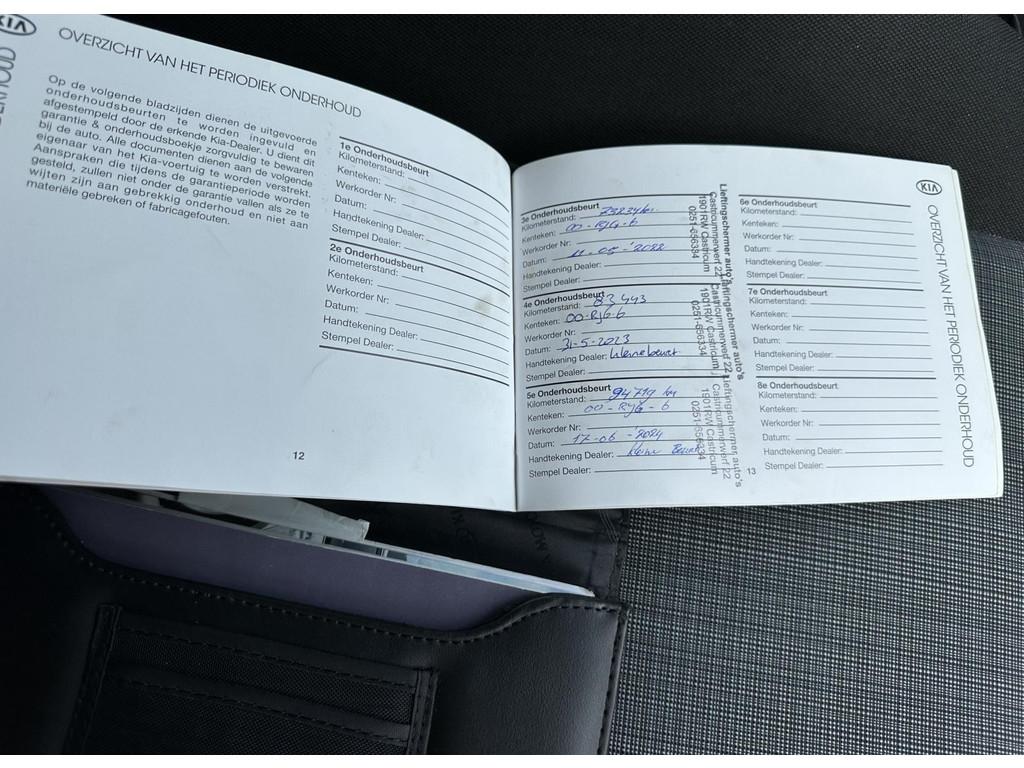 KIA
OVERZICHT VAN HET PERIODIEK ONDERHOUD
Op de volgende bladzijden dienen de uitgevoerde
onderhoudsbeurten te worden ingevuld en
afgestempeld door de erkende Kia-Dealer. U dient dit
garantie & onderhoudsboekje zorgvuldig te bewaren
bij de auto. Alle documenten dienen aan de volgende
eigenaar van het Kia-voertuig te worden verstrekt.
Aanspraken die tijdens de garantieperiode worden
gesteld, zullen niet onder de garantie vallen als ze te
wijten zijn aan gebrekkig onderhoud en niet aan
materiële gebreken of fabricagefouten.
1e Onderhoudsbeurt
Kilometerstand:
Kenteken:
Werkorder Nr:
Datum:
Handtekening Dealer:
Stempel Dealer:
2e Onderhoudsbeurt
Kilometerstand:
Kenteken:
Werkorder Nr:
Datum:
Handtekening Dealer:
Stempel Dealer:
12
3e Onderhoudsbeurt
Kilometerstand: 75834 km
Kenteken: 00-RJG-6
Werkorder Nr:
Datum: 11-05-2022
Handtekening Dealer:
Stempel Dealer:
Lieftingschermer auto's
Castricummerwerf 22
1901RW Castricum
0251-656334
4e Onderhoudsbeurt
Kilometerstand: 83 443
Kenteken: 00-RJG-6
Werkorder Nr:
Datum: 31-5-2023
Handtekening Dealer: kleine beurt
Stempel Dealer:
Lieftingschermer auto's
Castricummerwerf 22
1901RW Castricum
0251-656334
5e Onderhoudsbeurt
Kilometerstand: 94719 km
Kenteken: 00-RJG-6
Werkorder Nr:
Datum: 17-06-2024
Handtekening Dealer: kleine Beurt
Stempel Dealer:
Lieftingschermer auto's
Castricummerwerf 22
1901RW Castricum
0251-656334
13
6e Onderhoudsbeurt
Kilometerstand:
Kenteken:
Werkorder Nr:
Datum:
Handtekening Dealer:
Stempel Dealer:
7e Onderhoudsbeurt
Kilometerstand:
Kenteken:
Werkorder Nr:
Datum:
Handtekening Dealer:
Stempel Dealer:
8e Onderhoudsbeurt
Kilometerstand:
Kenteken:
Werkorder Nr:
Datum:
Handtekening Dealer:
Stempel Dealer:
KIA
OVERZICHT VAN HET PERIODIEK ONDERHOUD